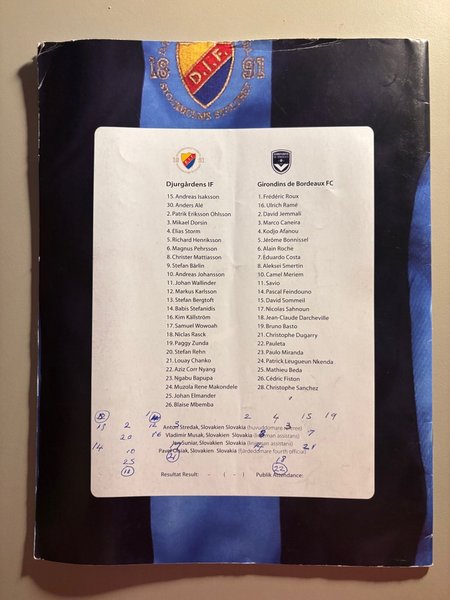 18 91
D.I.F.
STOCKHOLMS
Djurgårdens IF
15. Andreas Isaksson
30. Anders Alé
2. Patrik Eriksson Ohlsson
3. Mikael Dorsin
4. Elias Storm
5. Richard Henriksson
6. Magnus Pehrsson
8. Christer Mattiasson
9. Stefan Bärlin
10. Andreas Johansson
11. Johan Wallinder
12. Markus Karlsson
13. Stefan Bergtoft
14. Babis Stefanidis
16. Kim Källström
17. Samuel Wowoah
18. Niclas Rasck
19. Paggy Zunda
20. Stefan Rehn
21. Louay Chanko
22. Aziz Corr Nyang
23. Ngabu Bapupa
24. Muzola Rene Makondele
25. Johan Elmander
26. Blaise Mbemba
Girondins de Bordeaux FC
1. Frédéric Roux
16. Ulrich Ramé
2. David Jemmali
3. Marco Caneira
4. Kodjo Afanou
5. Jérôme Bonnissel
6. Alain Roche
7. Eduardo Costa
8. Aleksei Smertin
10. Camel Meriem
11. Savio
14. Pascal Feindouno
15. David Sommeil
17. Nicolas Sahnoun
18. Jean-Claude Darcheville
19. Bruno Basto
21. Christophe Dugarry
22. Pauleta
23. Paulo Miranda
24. Patrick Leugueun Nkenda
25. Mathieu Beda
26. Cédric Fiston
28. Christophe Sanchez
2 4 15 19
13 2 12 3 3
Anton Stredak, Slovakien Slovakia (huvuddomare referee)
20 16 8 7
Vladimir Musak, Slovakien Slovakia (linjeman assistans)
14 17 14 21
Slovakien Slovakia (linjeman assistans)
10 18
Slovakien Slovakia (fjärdedomare fourth official)
25 21 22
Resultat Result: - ( - ) Publik Attendance: